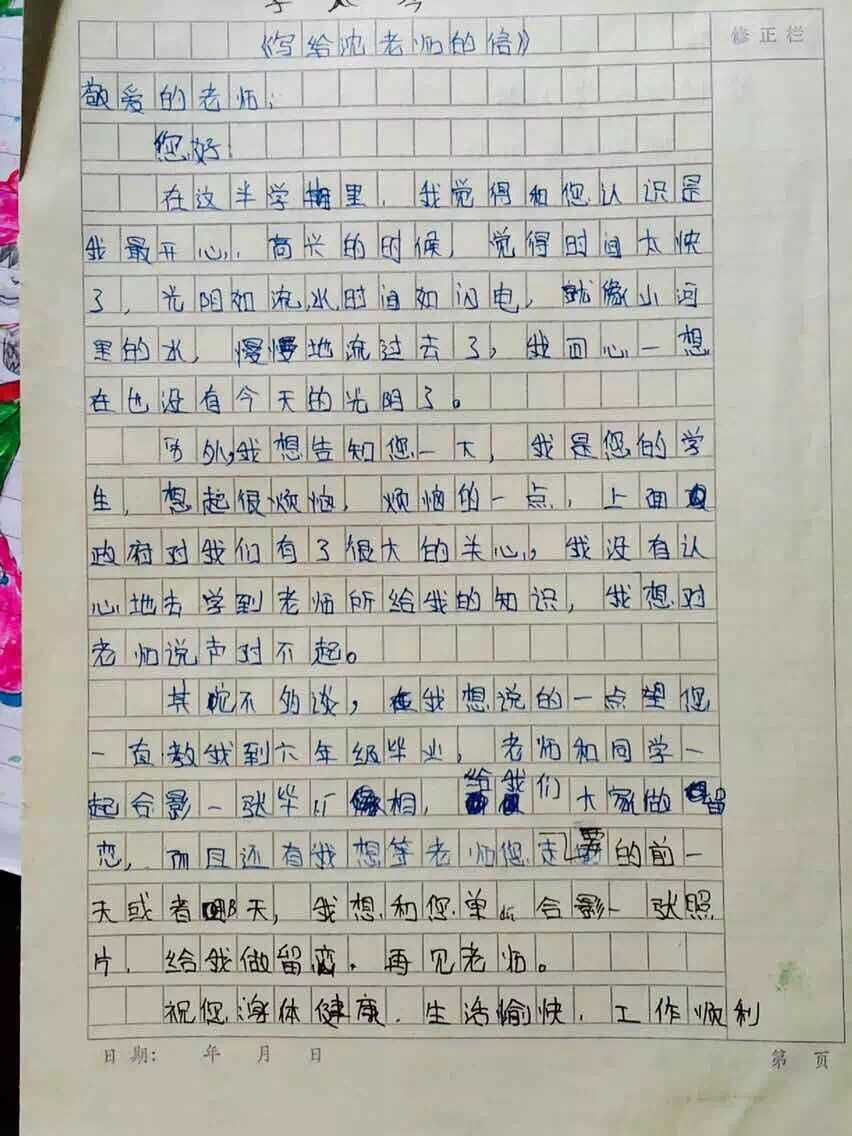 《写给沈老师的信》
修正栏
敬爱的老师：
您好！
在这半学期里，我觉得和您认识是
我最开心，高兴的时候，觉得时间太快
了，光阴如流水时间如闪电，就像小河
里的水，慢慢地流过去了，我回心一想
在也没有今天的光阴了。
另外，我想告知您一大，我是您的学
生，想起很烦恼，烦恼的一点，上面
政府对我们有了很大的关心，我没有认
心地去学到老师所给我的知识，我想对
老师说声对不起。
其不多谈，我想说的一点望您
一直教我到六年级毕业，老师和同学一
起合影一张毕业相，给我们大家做留
恋，而且还有我想等老师您走的前一
天或者那天，我想和您单合影一张照
片，给我做留恋，再见老师。
祝您身体健康，生活愉快，工作顺利
日期： 年 月 日
第 页